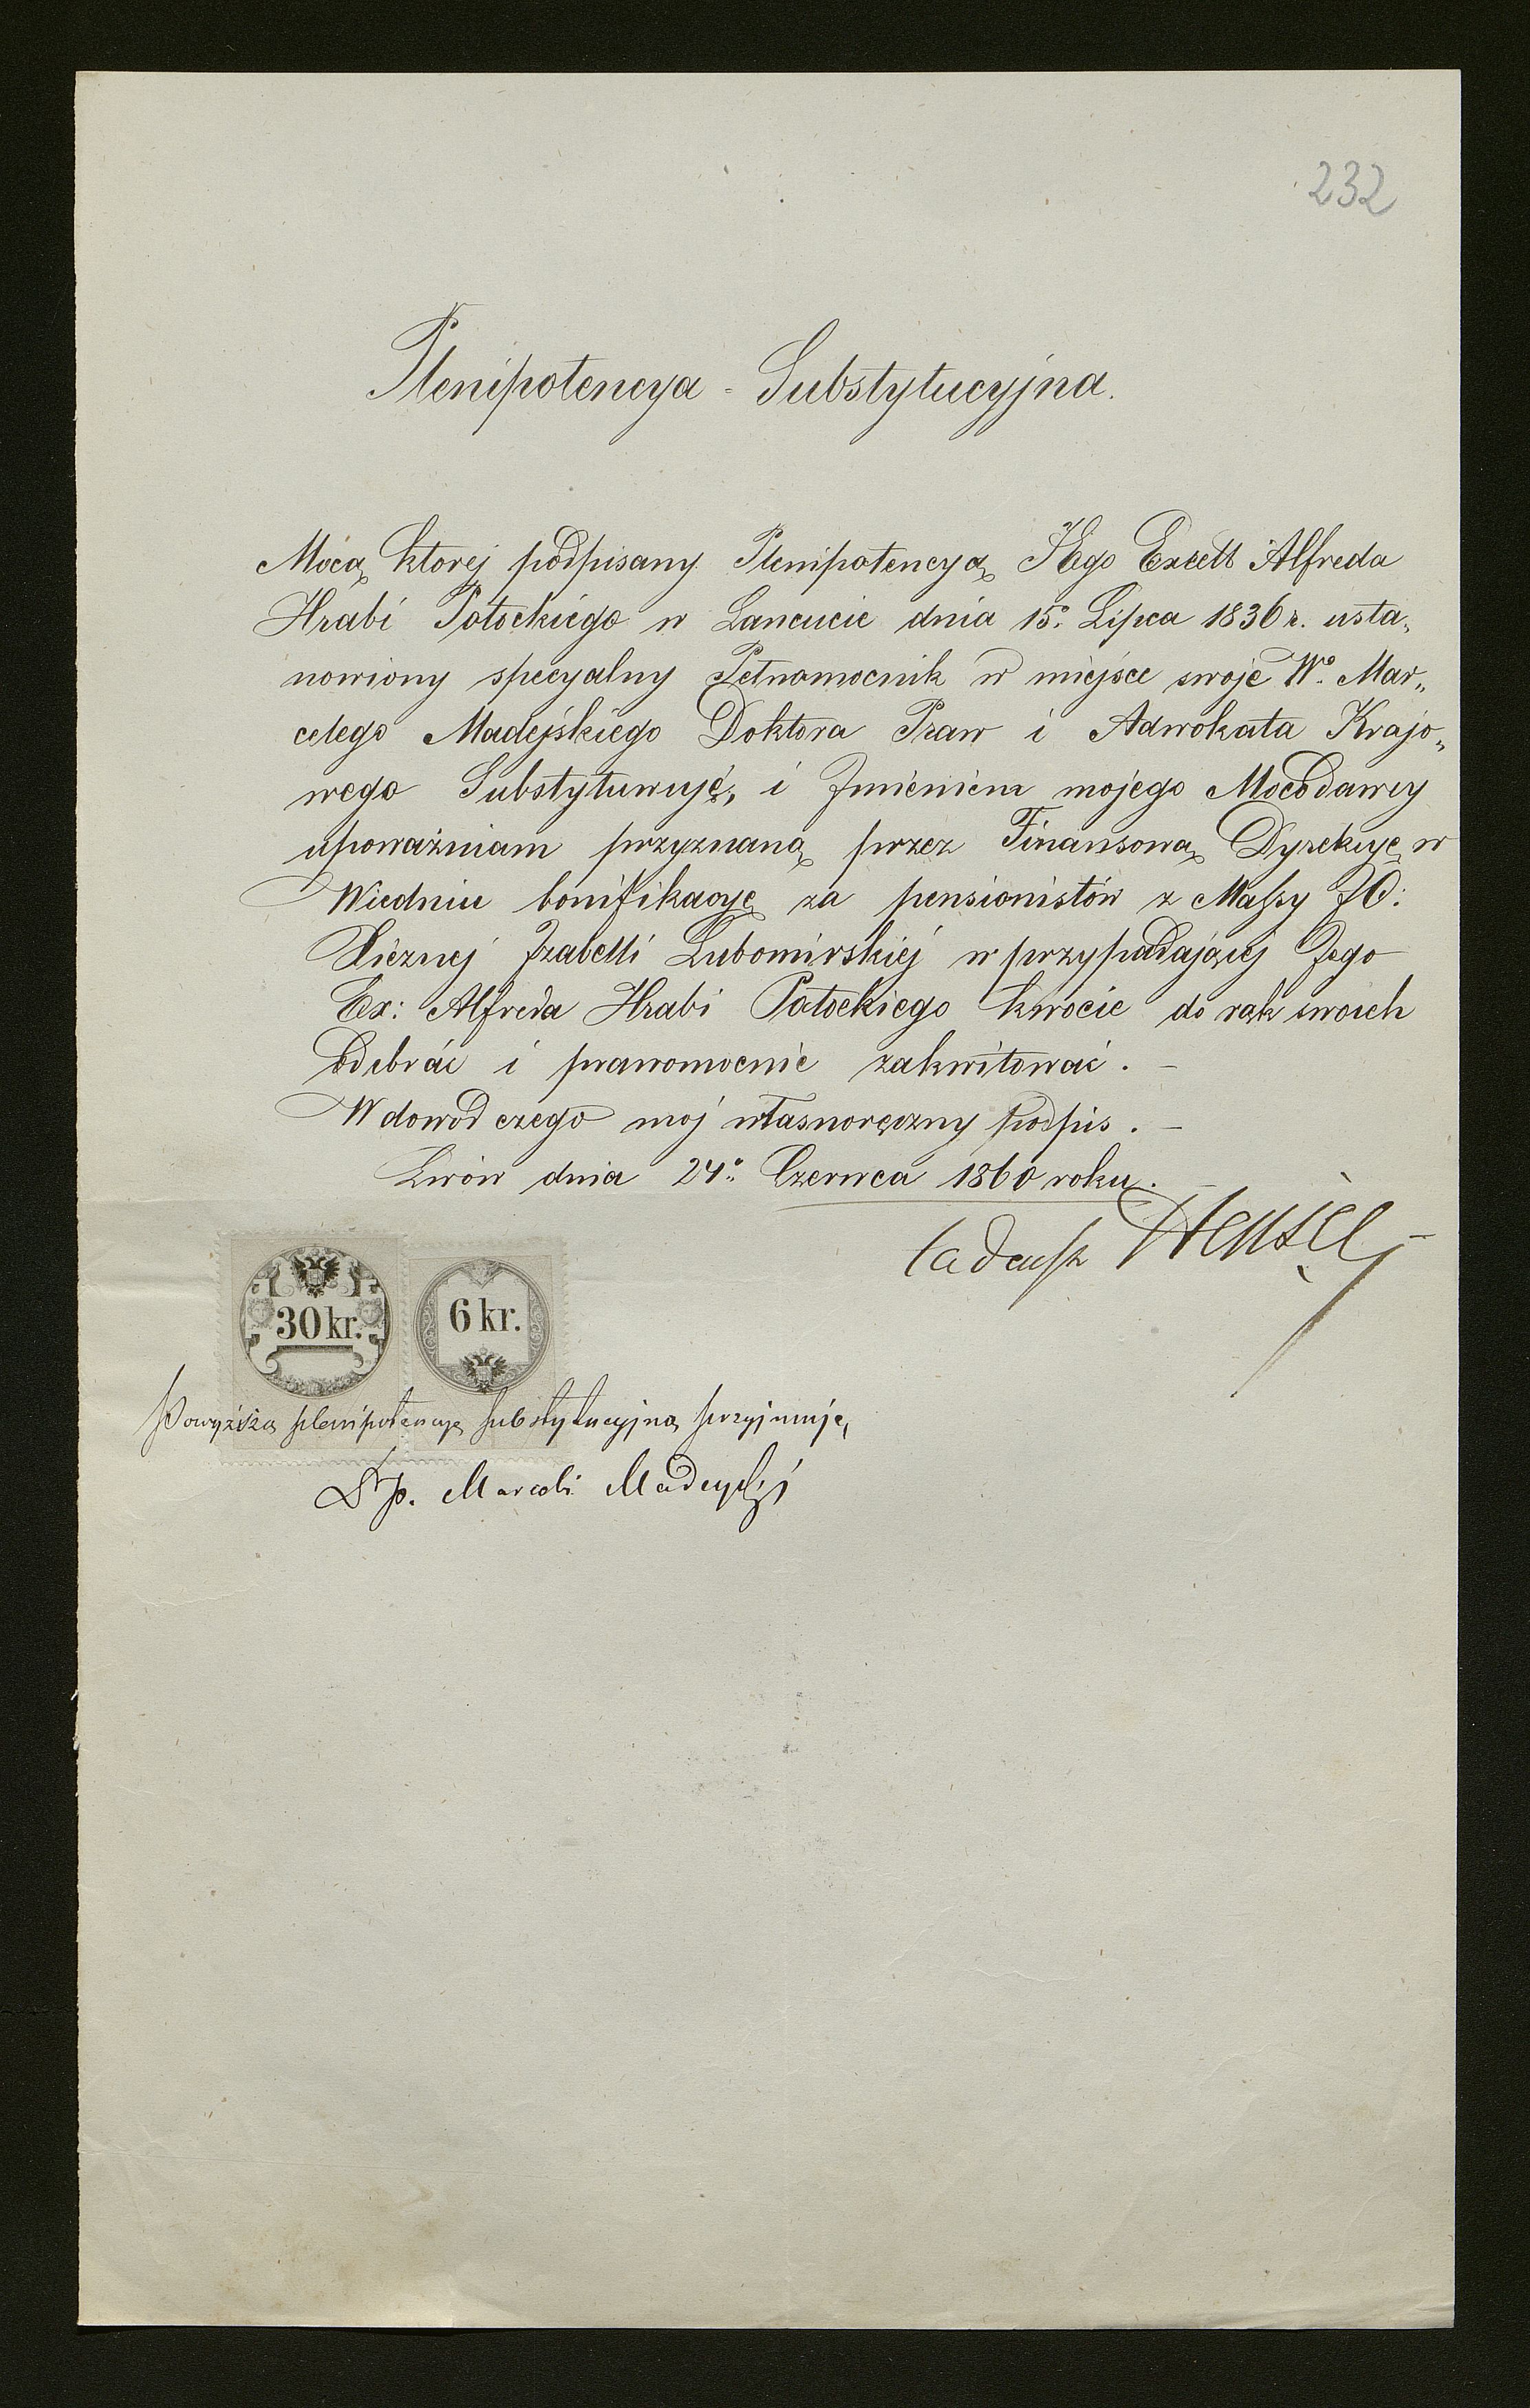 232
Plenipotencya - Substytucyjna.
Mocą ktorej podpisany Plenipotencyą JEgo Excell Alfreda
Hrabi Potockiego w Lancucie dnia 15. Lipca 1836 r. usta„
nowiony specyalny Pełnomocnik w miejsce swoje Wo. Mar„
celego Madejskiego Doktora Praw i Adwokata Krajo„
wego Substytuwuję, i Imieniem mojego Mocodawcy
upoważniam przyznaną przez Finansową Dyrekcyę w
Wiedniu bonifikacyę za pensionistów z Massy JO:
Xiężnej Izabelli Lubomirskiej w przypadającej Jego
Ex: Alfreda Hrabi Potockiego kwocie do rąk swoich
odebrać i prawomocnie zakwitować. –
W dowód czego moj własnoręczny podpis. –
Lwów dnia 24o. Czerwca 1860 roku. –
Tadeusz
30 kr. 6 kr.
Powyższą plenipotencyę substytucyjną przyjmuję,
Dr p. Marceli Madeyski